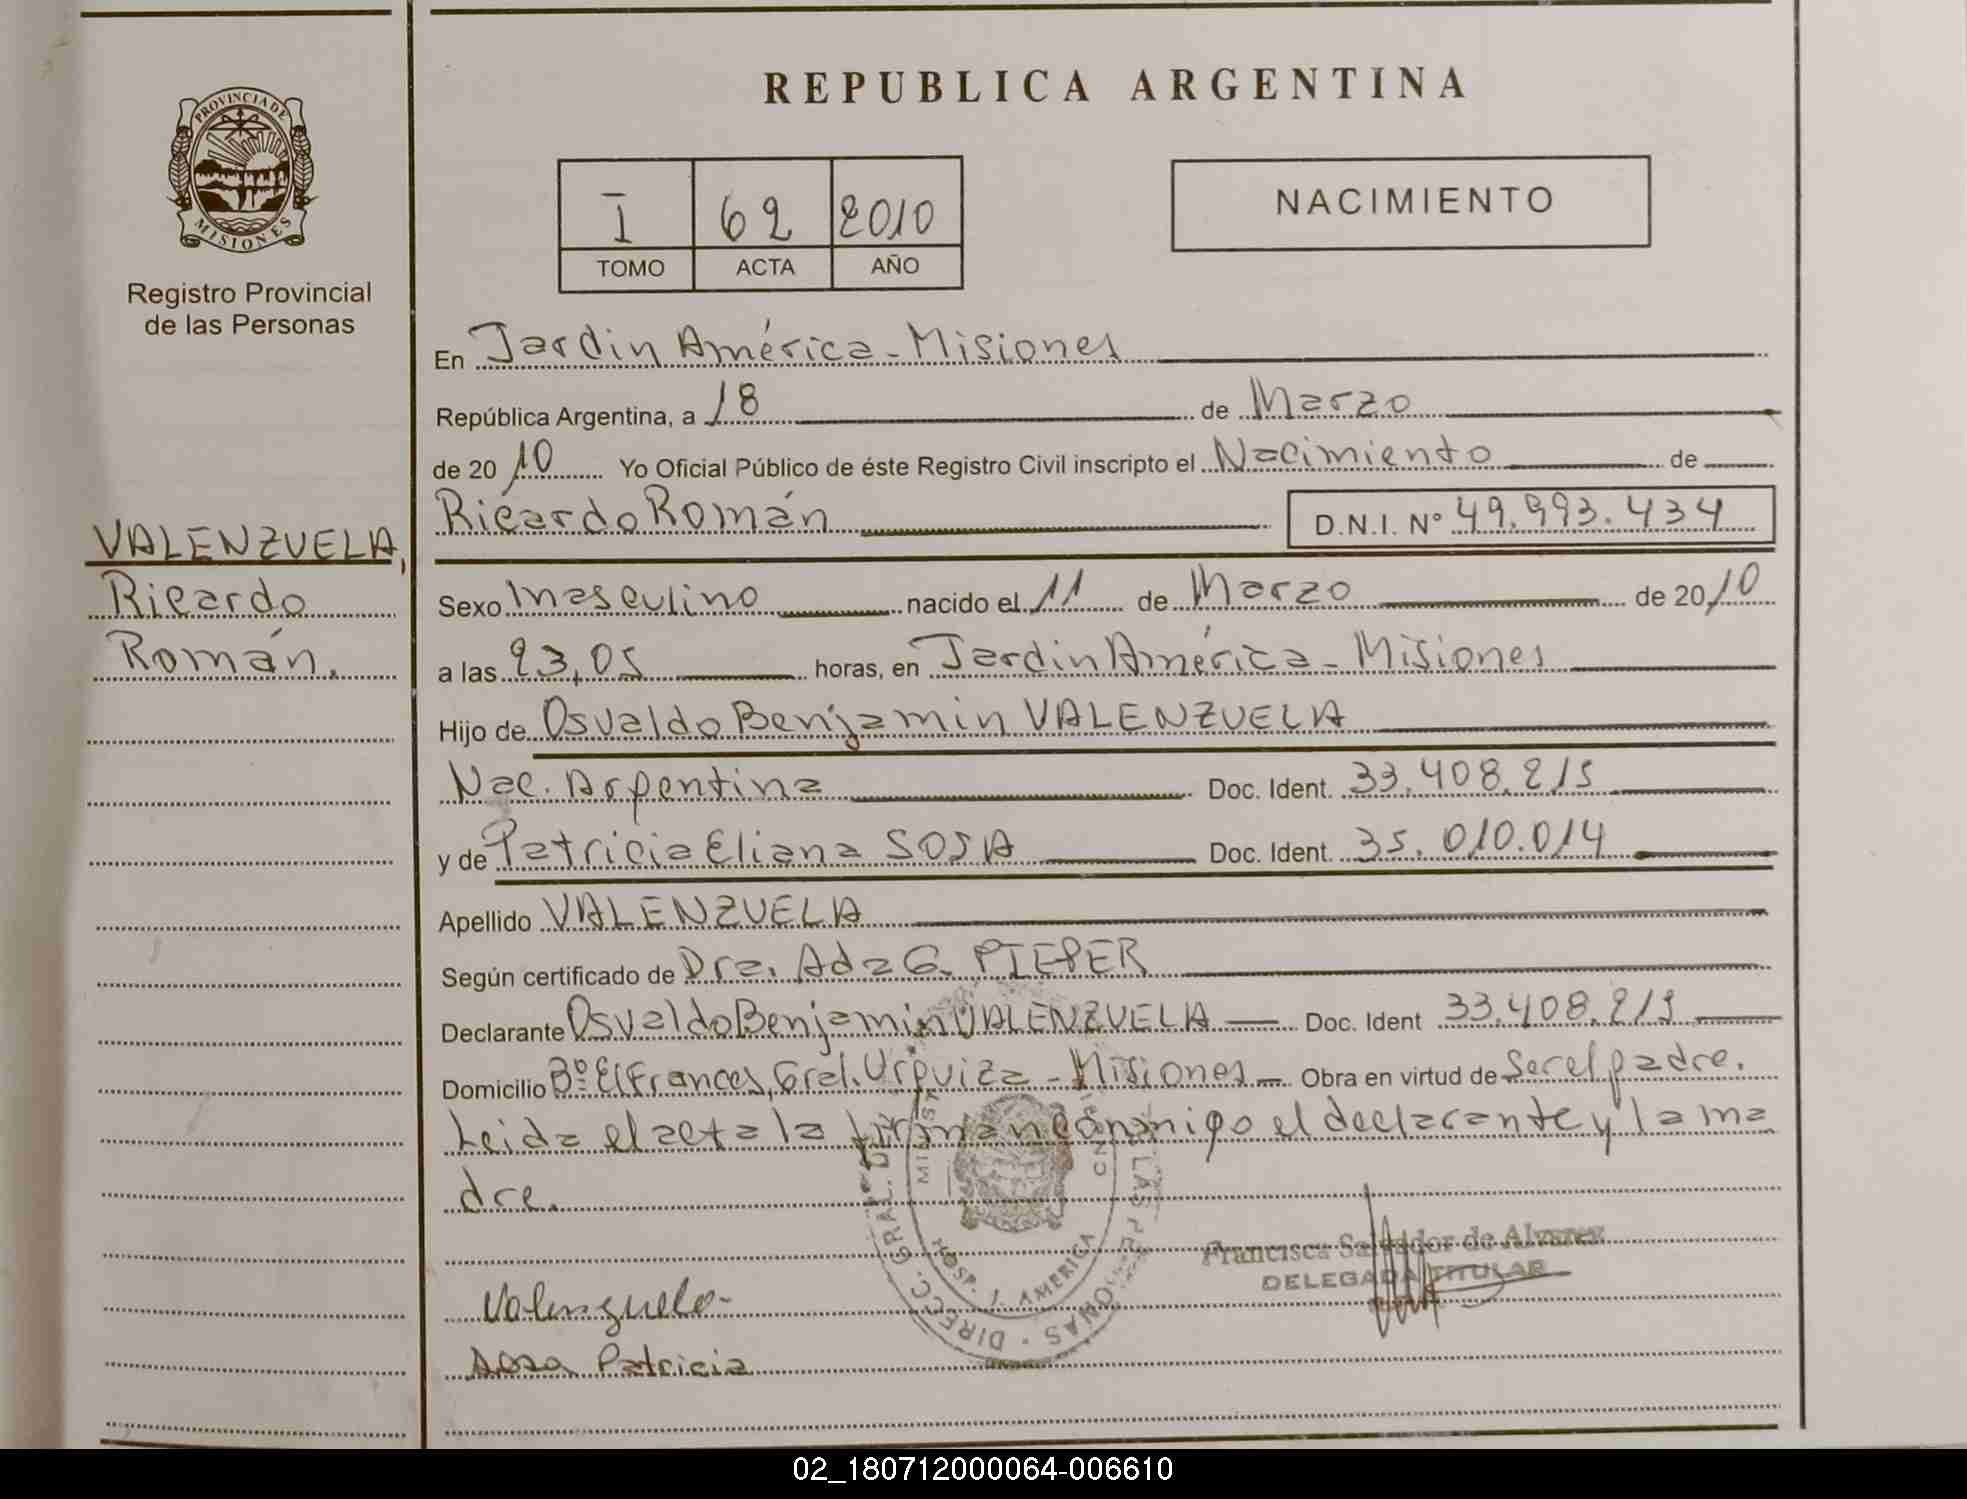 PROVINCIA DE
MISIONES
Registro Provincial
de las Personas
VALENZUELA,
Ricardo
Román.
REPUBLICA ARGENTINA
I 62 2010
TOMO ACTA AÑO
NACIMIENTO
En Jardin América - Misiones
República Argentina, a 18 de Marzo
de 2010 Yo Oficial Público de éste Registro Civil inscripto el Nacimiento de
Ricardo Román D.N.I. Nº 49.993.434
Sexo Masculino nacido el 11 de Marzo de 2010
a las 23,05 horas, en Jardin América - Misiones
Hijo de Osvaldo Benjamin VALENZUELA
Nac. Argentina Doc. Ident. 33.408.215
y de Patricia Eliana SOSA Doc. Ident. 35.010.014
Apellido VALENZUELA
Según certificado de Dra. Ada G. PIEPER
Declarante Osvaldo Benjamin VALENZUELA Doc. Ident 33.408.215
Domicilio Bº El Frances, Gral. Urquiza - Misiones Obra en virtud de Ser el padre.
Leida el acta la firman conmigo el declarante y la ma
dre.
Francisca Salvador de Alvarez
DELEGADA TITULAR
HOSP. J. AMERICA
Valenzuela
Sosa Patricia
02_180712000064-006610